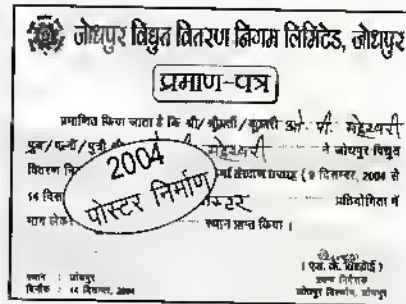 जोधपुर विद्युत वितरण निगम लिमिटेड, जोधपुर
प्रमाण-पत्र
प्रमाणित किया जाता है कि श्री/श्रीमती/सुश्री ओ. पी. महेश्वरी
पुत्र/पत्नी/पुत्री श्री महेश्वरी ने जोधपुर विद्युत
वितरण ऊर्जा संरक्षण सप्ताह ( 9 दिसम्बर, 2004 से
14 पोस्टर प्रतियोगिता में
भाग लेकर स्थान प्राप्त किया ।
2004
पोस्टर निर्माण
स्थान : जोधपुर
दिनांक : 14 दिसम्बर, 2004
प्रबन्ध निदेशक
जोधपुर डिस्कॉम, जोधपुर